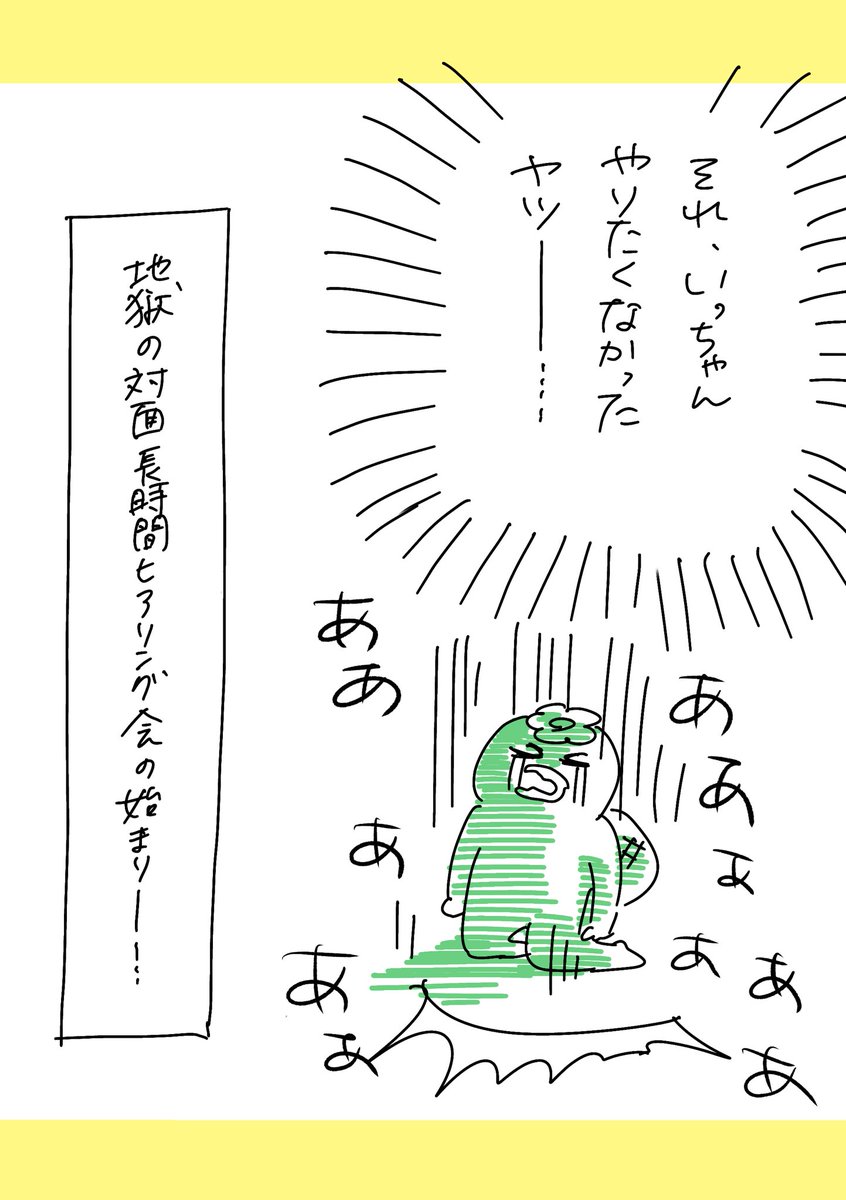 それ、いっちゃん
やりたくなかった
ヤツ――…
ああ
あ
あぁ
ああぁ
ぁああ
地獄の対面長時間ヒアリング会の始まり――…